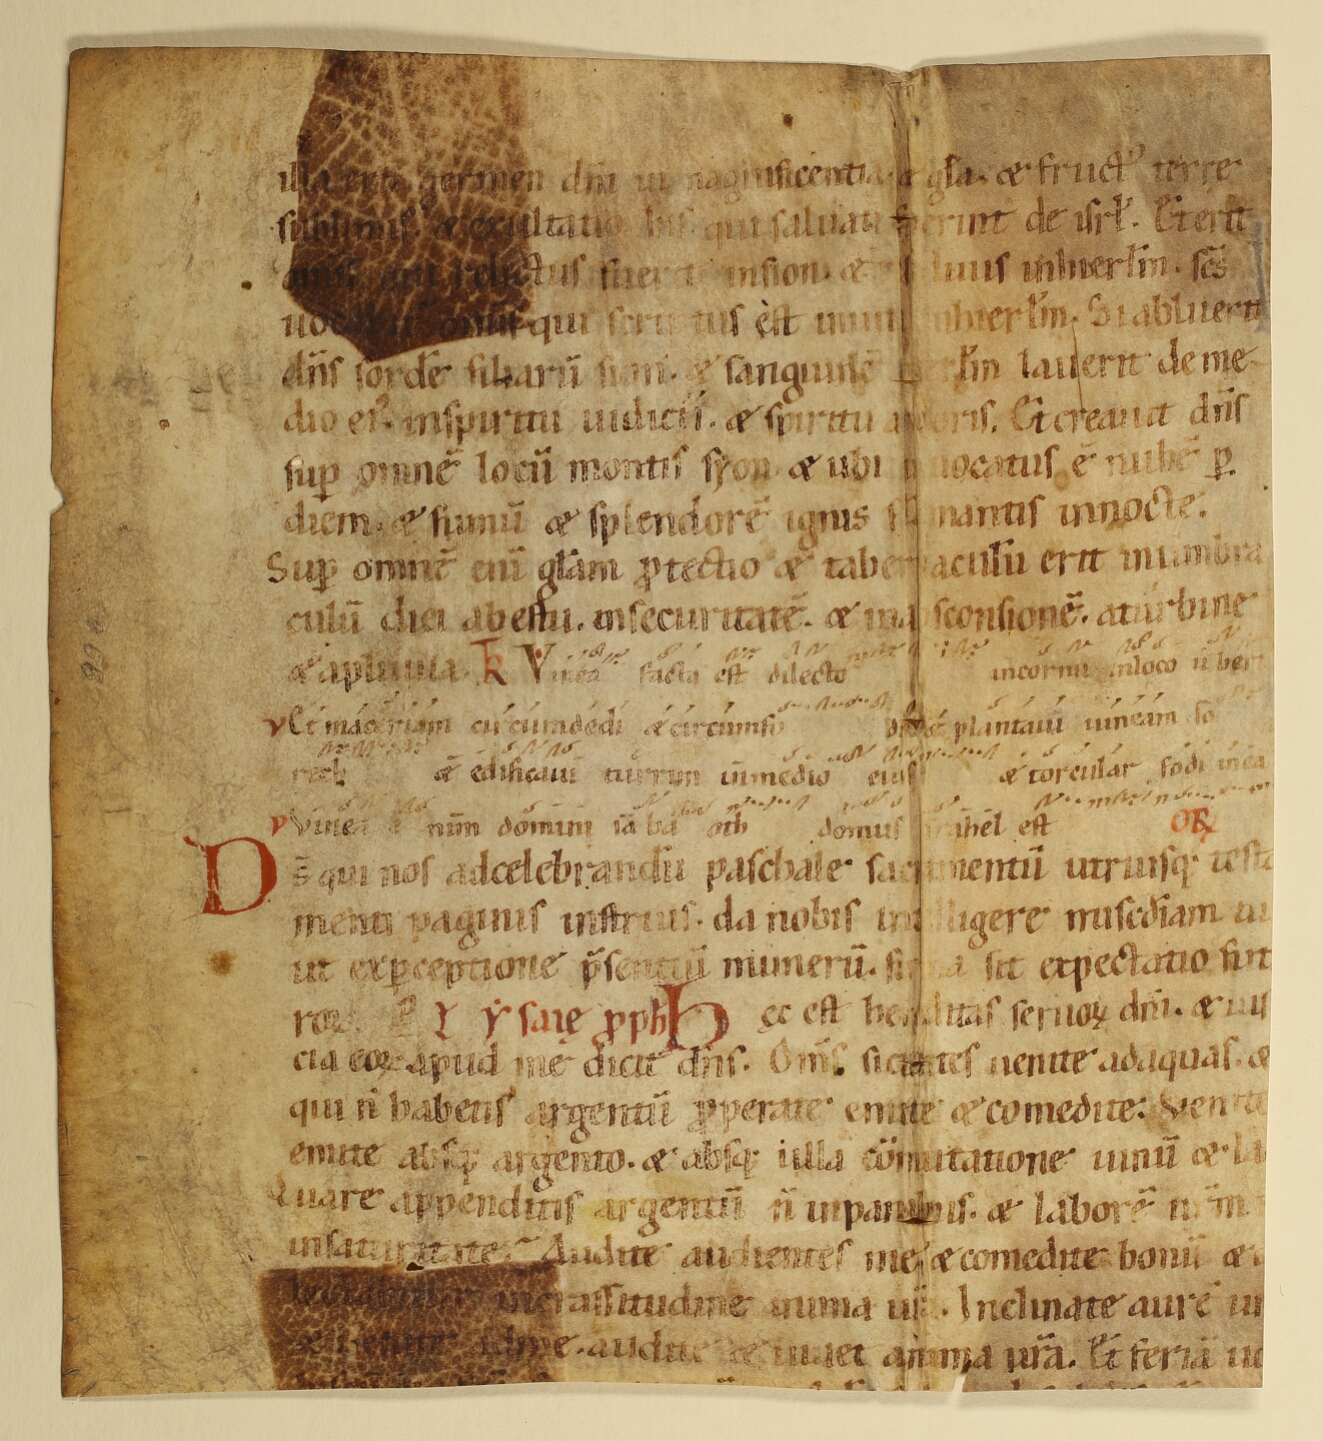 illa erit germen dñi in magnificentia & gła. & fruct᾽ terre
sublimis & exultatio his qui saluati fuerint de isrł. Et erit
omis qui relictus fuerit insion. & residuus inhierłm. scs̄
uocabit᾽ omis qui scriptus est inuita inhierłm. Si abluerit
dñs sordē filiarū sion. & sanguinē hierłm lauerit de me
dio ei᾽. inspiritu iudicii. & spiritu ardoris. Et creauit dñs
sup̄ omnē locū montis syon & ubi inuocatus ē nubē p̄
diem. & fumū & splendorē ignis flammantis innocte.
Sup̄ omnē enī głam p̄tectio & tabernaculū erit inumbra
culū diei abestu. insecuritatē. & inabsconsionē. aturbine
& apluuia. TR Vinea facta est dilecto incornu inloco uberi
V Et maceriam circumdedi & circumfo di & plantaui uineam so
rech & edificaui turrim inmedio eius & torcular fodi inea
V Vinea ē nim domini saba oth domus israhel est OR
Ds̄ qui nos adcelebrandū paschale sacramentū utriusq; testa
menti paginis instruis. da nobis intelligere miscdiam tu
ut exp̄ceptione p̄sentiū munerū. firma sit expectatio futu
roꝝ. L Ysaię p̄ph̄ Hęc est hereditas seruoꝝ dñi. & ius
cia eoꝝ apud me dicit dñs. Oms̄ sicientes uenite adaquas. &
qui ñ habetis argentū p̄perate emite & comedite. Venite
emite absq; argento. & absq; ulla cōmutatione uinū & la
Quare appenditis argentū ñ inpanibus. & laborē urm̄ ñ
insaturitate. Audite audientes me & comedite bonū &
delectabitur incrassitudine anima ur̄a. Inclinate aurē ur
& uenite adme. audite & uiuet anima ur̄a. Et feriā uo